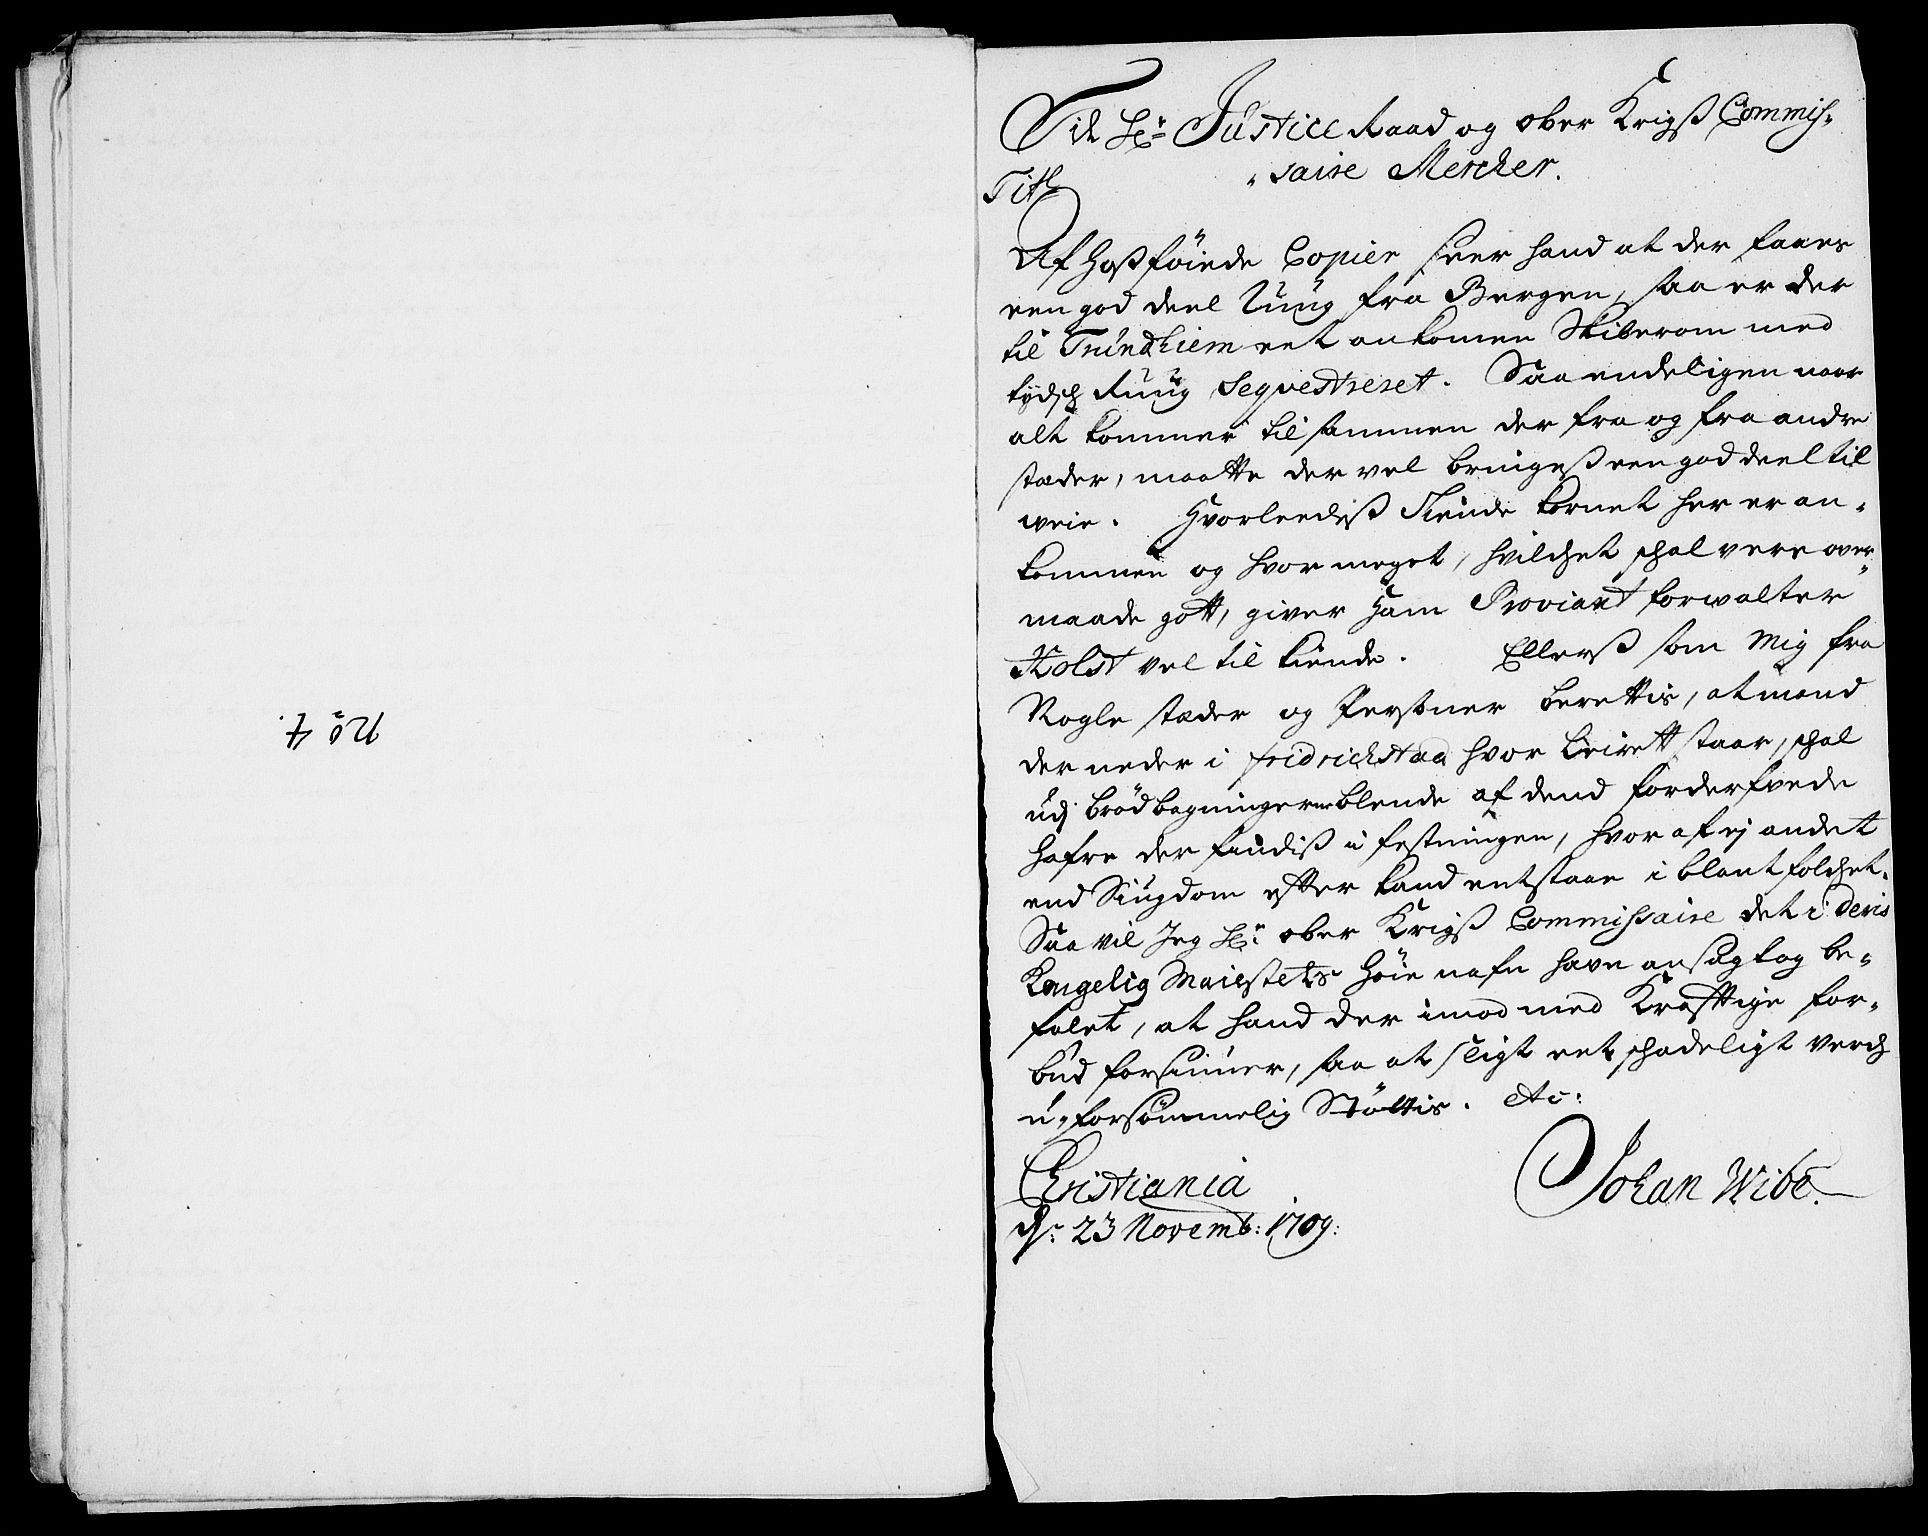 No 4.
Till Hr Justice Raad og ober Krigß Commis-
saire Mercker.
Titl
Af Hoßföiede Copier seer hand at der faaes
een god deel Rúúg fra Bergen, saa er der
til Trúndhiem eet ankomen Skiberom med
tydsch Rúúg Seqvestreret. Saa endeligen naar
alt kommer til sammen der fra og fra andre
stæder, maatte der vel bringeß een god deel til
weie. Hvorleediß Tiende kornet her er an-
kommen og hvor meget, hvilchet schal vere over-
maade gott, giver Ham Proviant forwalter
Holst vel til kiende. Ellerß som Mig fra
Nogle stæder og Persöner berettis, at mand
der neder i fridrichstad hvor Leirett staar, schal
údj brödbagninger meblende af dend forderfvede
hafre der findiß i festningen, hvor af ej andet
end Siúgdom efter kand entstaae i blant folchet.
Saa vil Jeg Hr: ober Krigß Commissaire det i deris
Kongelig Maiestets Höie nafn have ansagt og be-
falet, at hand der imod med Krafftige for-
búd forsiúner, saa at sligt eet schadeligt verch
ú-forsömmelig Stöttis. etc:
Christiania
dn: 23 Novemb: 1709:
Johan Wibe.